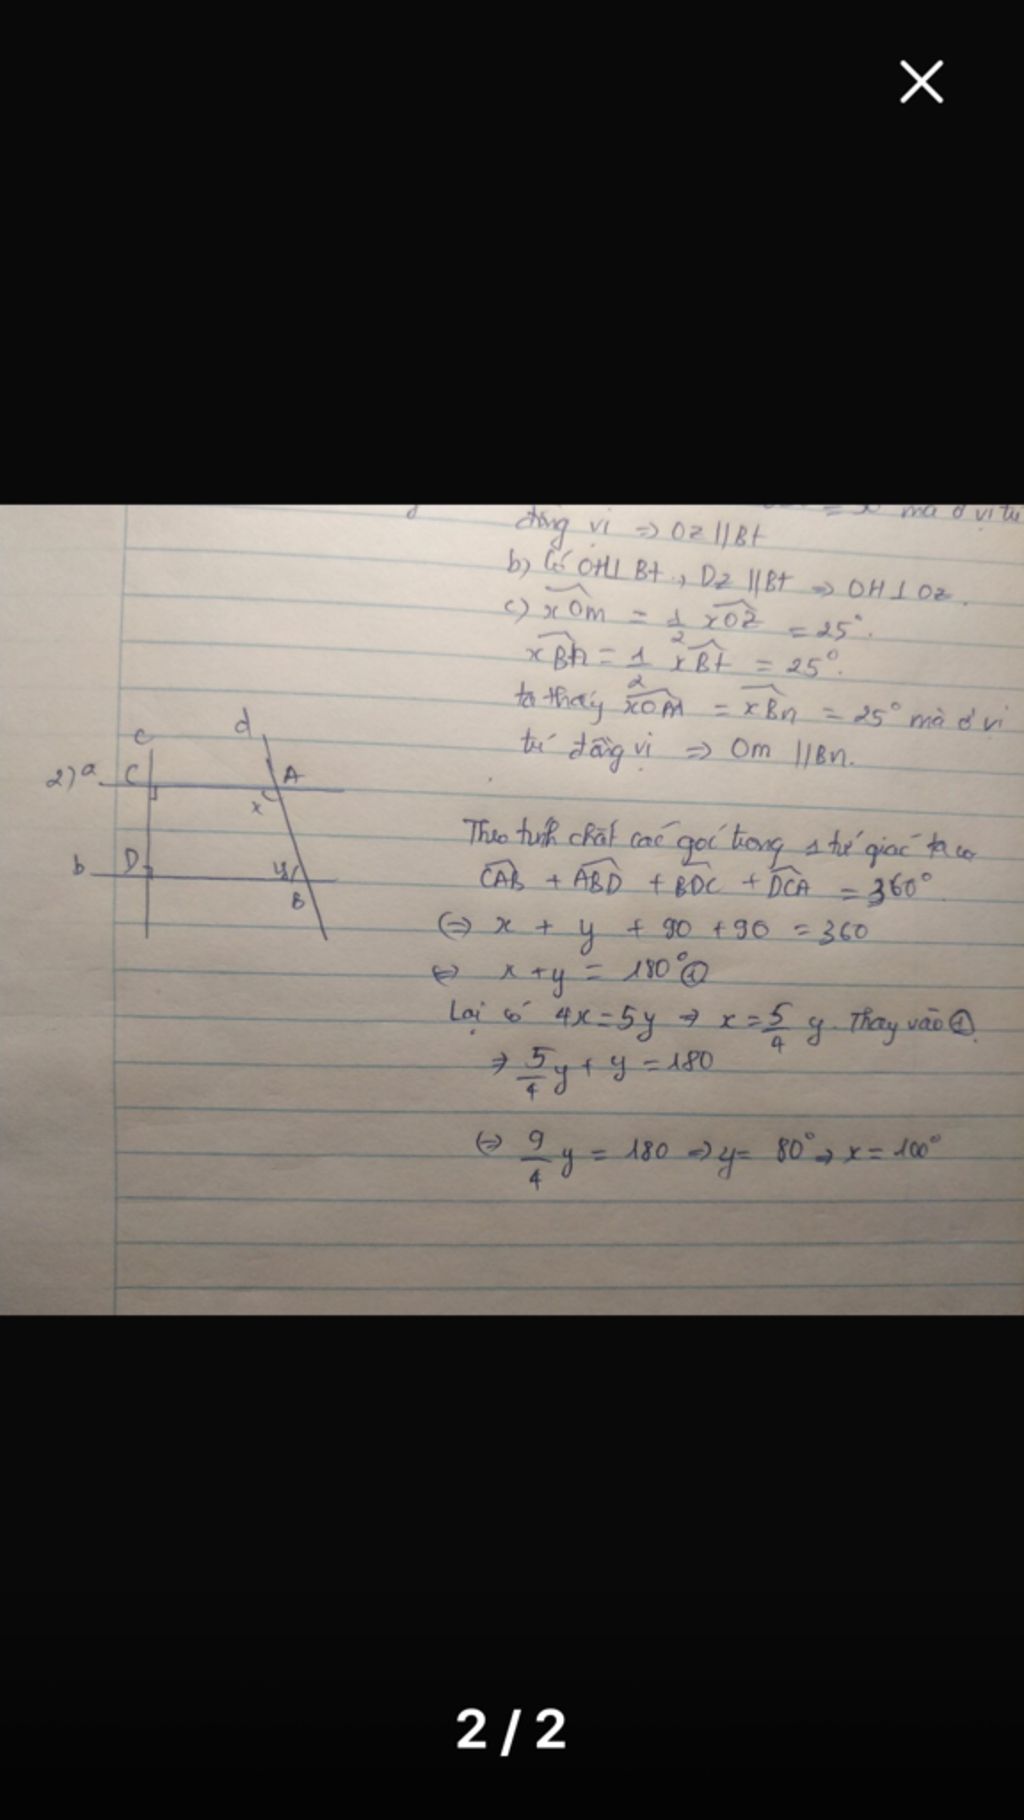 đồng vị => Oz // Bt
b) Có OH ⊥ Bt, Dz // Bt => OH ⊥ Oz.
c) xOm = 1/2 xOz = 25°.
xBn = 1/2 xBt = 25°.
ta thấy xOm = xBn = 25° mà ở vị
trí đồng vị => Om // Bn.
c d
2) a C A
x
b D y
B
Theo tính chất các góc trong 1 tứ giác ta có
CAB + ABD + BDC + DCA = 360°
<=> x + y + 90 + 90 = 360
<=> x + y = 180° ①
Lại có 4x = 5y => x = 5/4 y. Thay vào ①
=> 5/4 y + y = 180
<=> 9/4 y = 180 => y = 80° => x = 100°
2 / 2